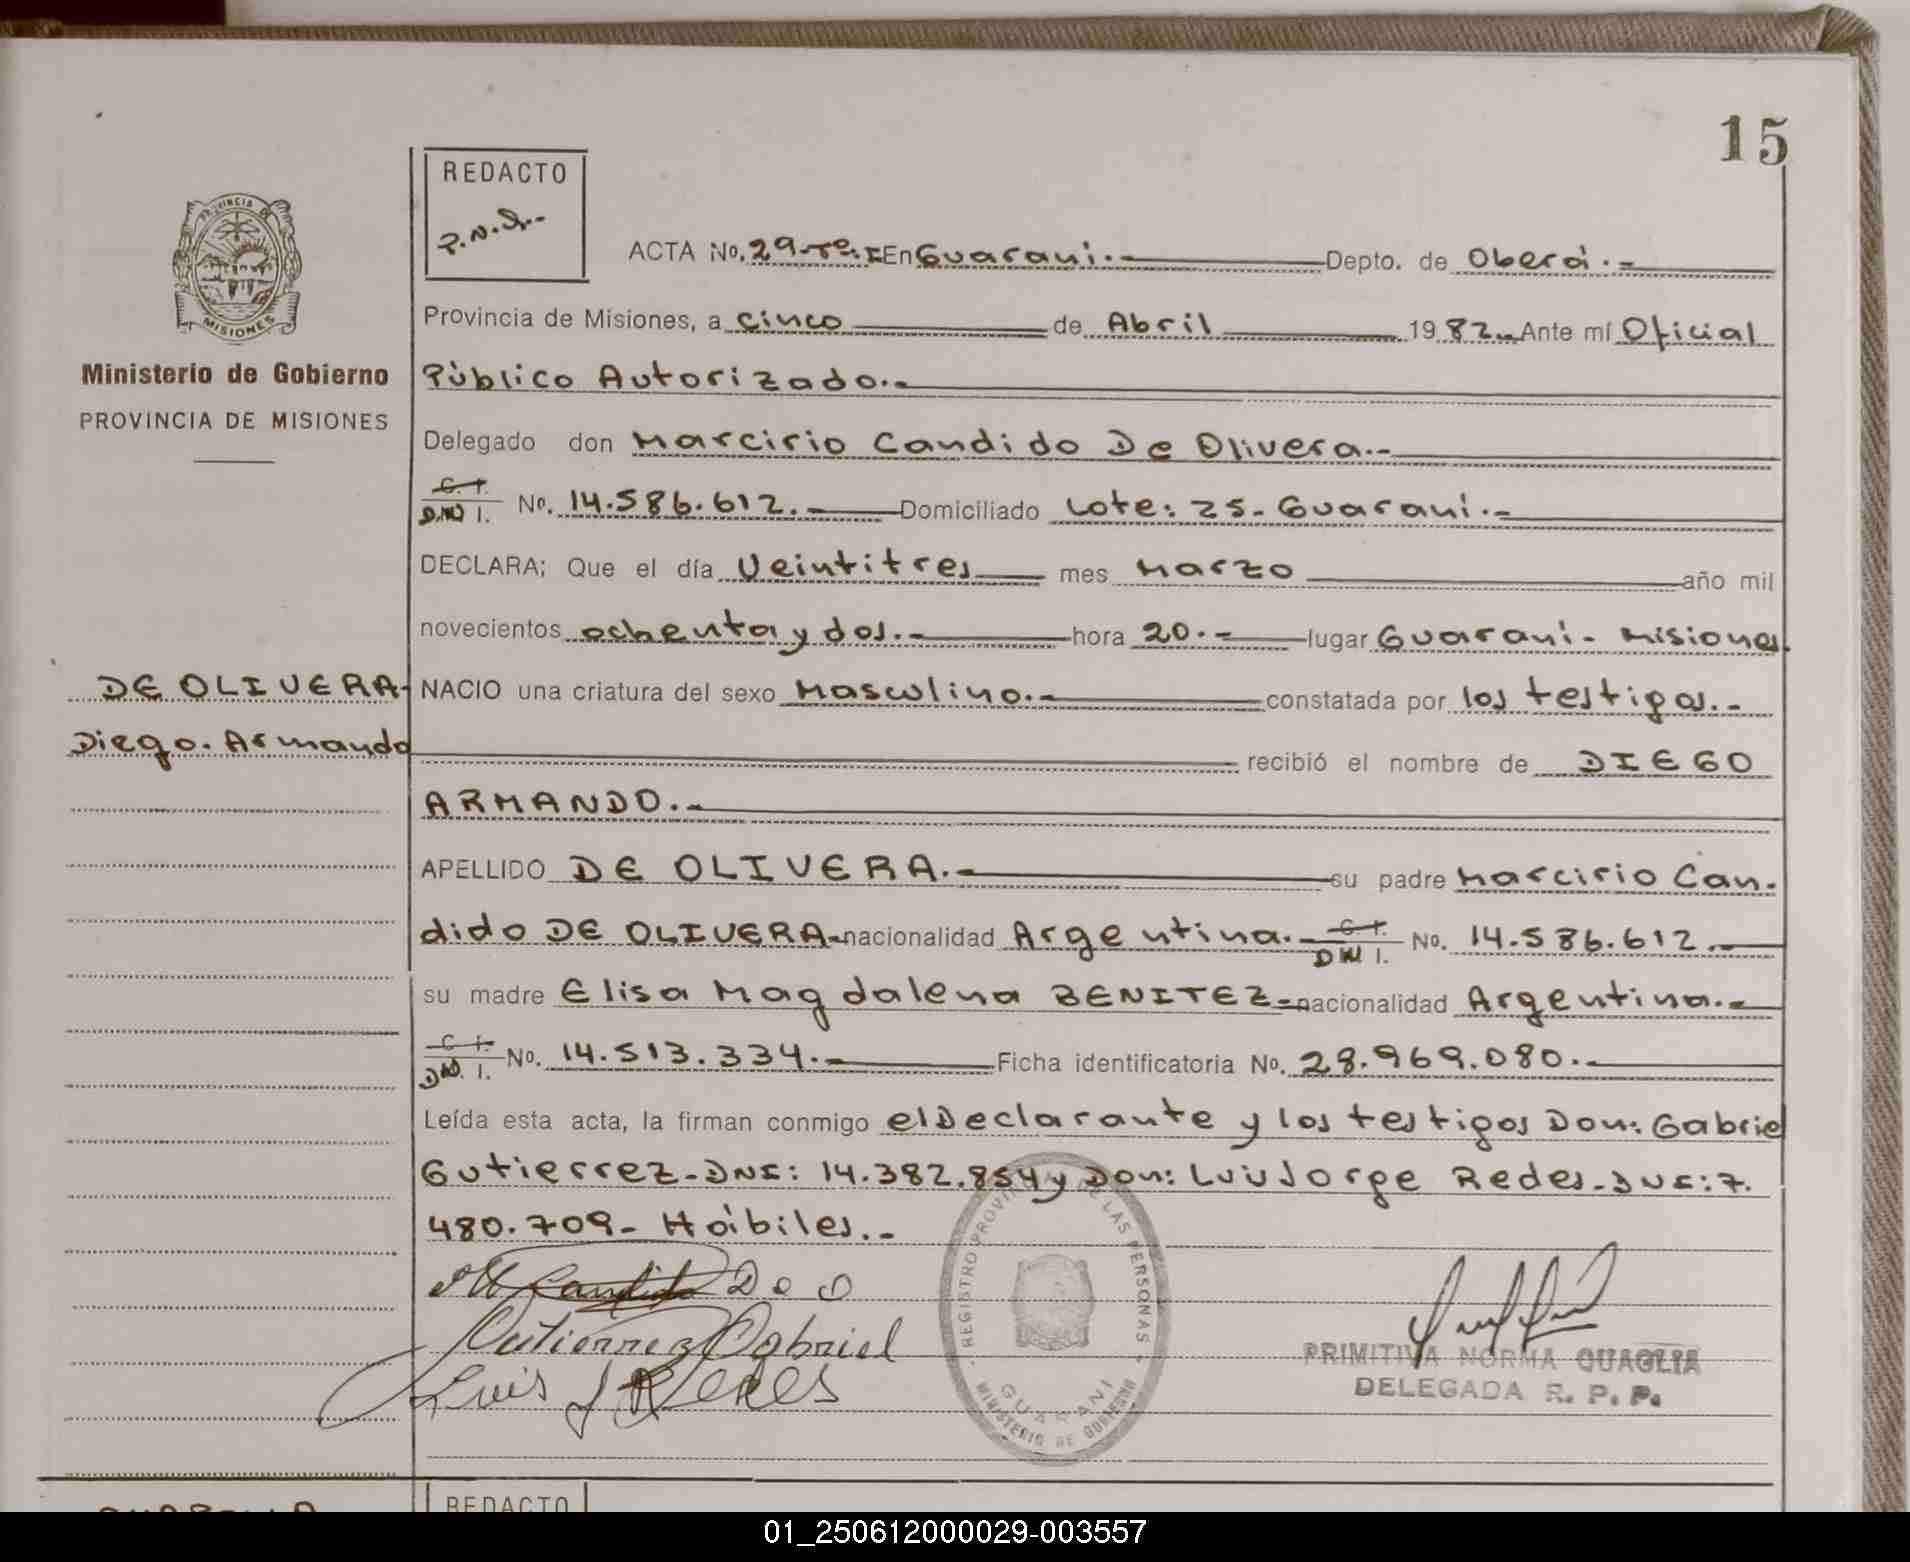 15
REDACTO
P.N.Q.-
PROVINCIA DE
MISIONES
Ministerio de Gobierno
PROVINCIA DE MISIONES
ACTA No. 29-Tº:I En Guaraní.- Depto. de Oberá.-
Provincia de Misiones, a cinco de Abril 1982 Ante mí Oficial
Público Autorizado.-
Delegado don Marcirio Candido De Olivera.-
C. I.
D.N I. No. 14.586.612.- Domiciliado Lote: 25- Guaraní.-
DECLARA; Que el día Veintitres mes Marzo año mil
novecientos ochenta y dos.- hora 20.- lugar Guaraní- Misiones.
DE OLIVERA-
Diego. Armando
NACIO una criatura del sexo Masculino.- constatada por los testigos.-
recibió el nombre de DIEGO
ARMANDO.-
APELLIDO DE OLIVERA.- su padre Marcirio Can-
dido DE OLIVERA- nacionalidad Argentina.- C. I.
DN I. No. 14.586.612.-
su madre Elisa Magdalena BENITEZ- nacionalidad Argentina.-
C. I.
DN. I. No. 14.513.334.- Ficha identificatoria No. 28.969.080.-
Leída esta acta, la firman conmigo el Declarante y los testigos Don: Gabriel
Gutierrez-DNI: 14.382.854 y Don: Luis Jorge Redes-DNI: 7.
480.709- Hábiles.-
M Candido De O
Gutierrez Gabriel
Luis J Redes
REGISTRO PROVINCIAL DE LAS PERSONAS
GUARANI
MINISTERIO DE GOBIERNO
PRIMITIVA NORMA QUAGLIA
DELEGADA R. P. P.
REDACTO
01_250612000029-003557